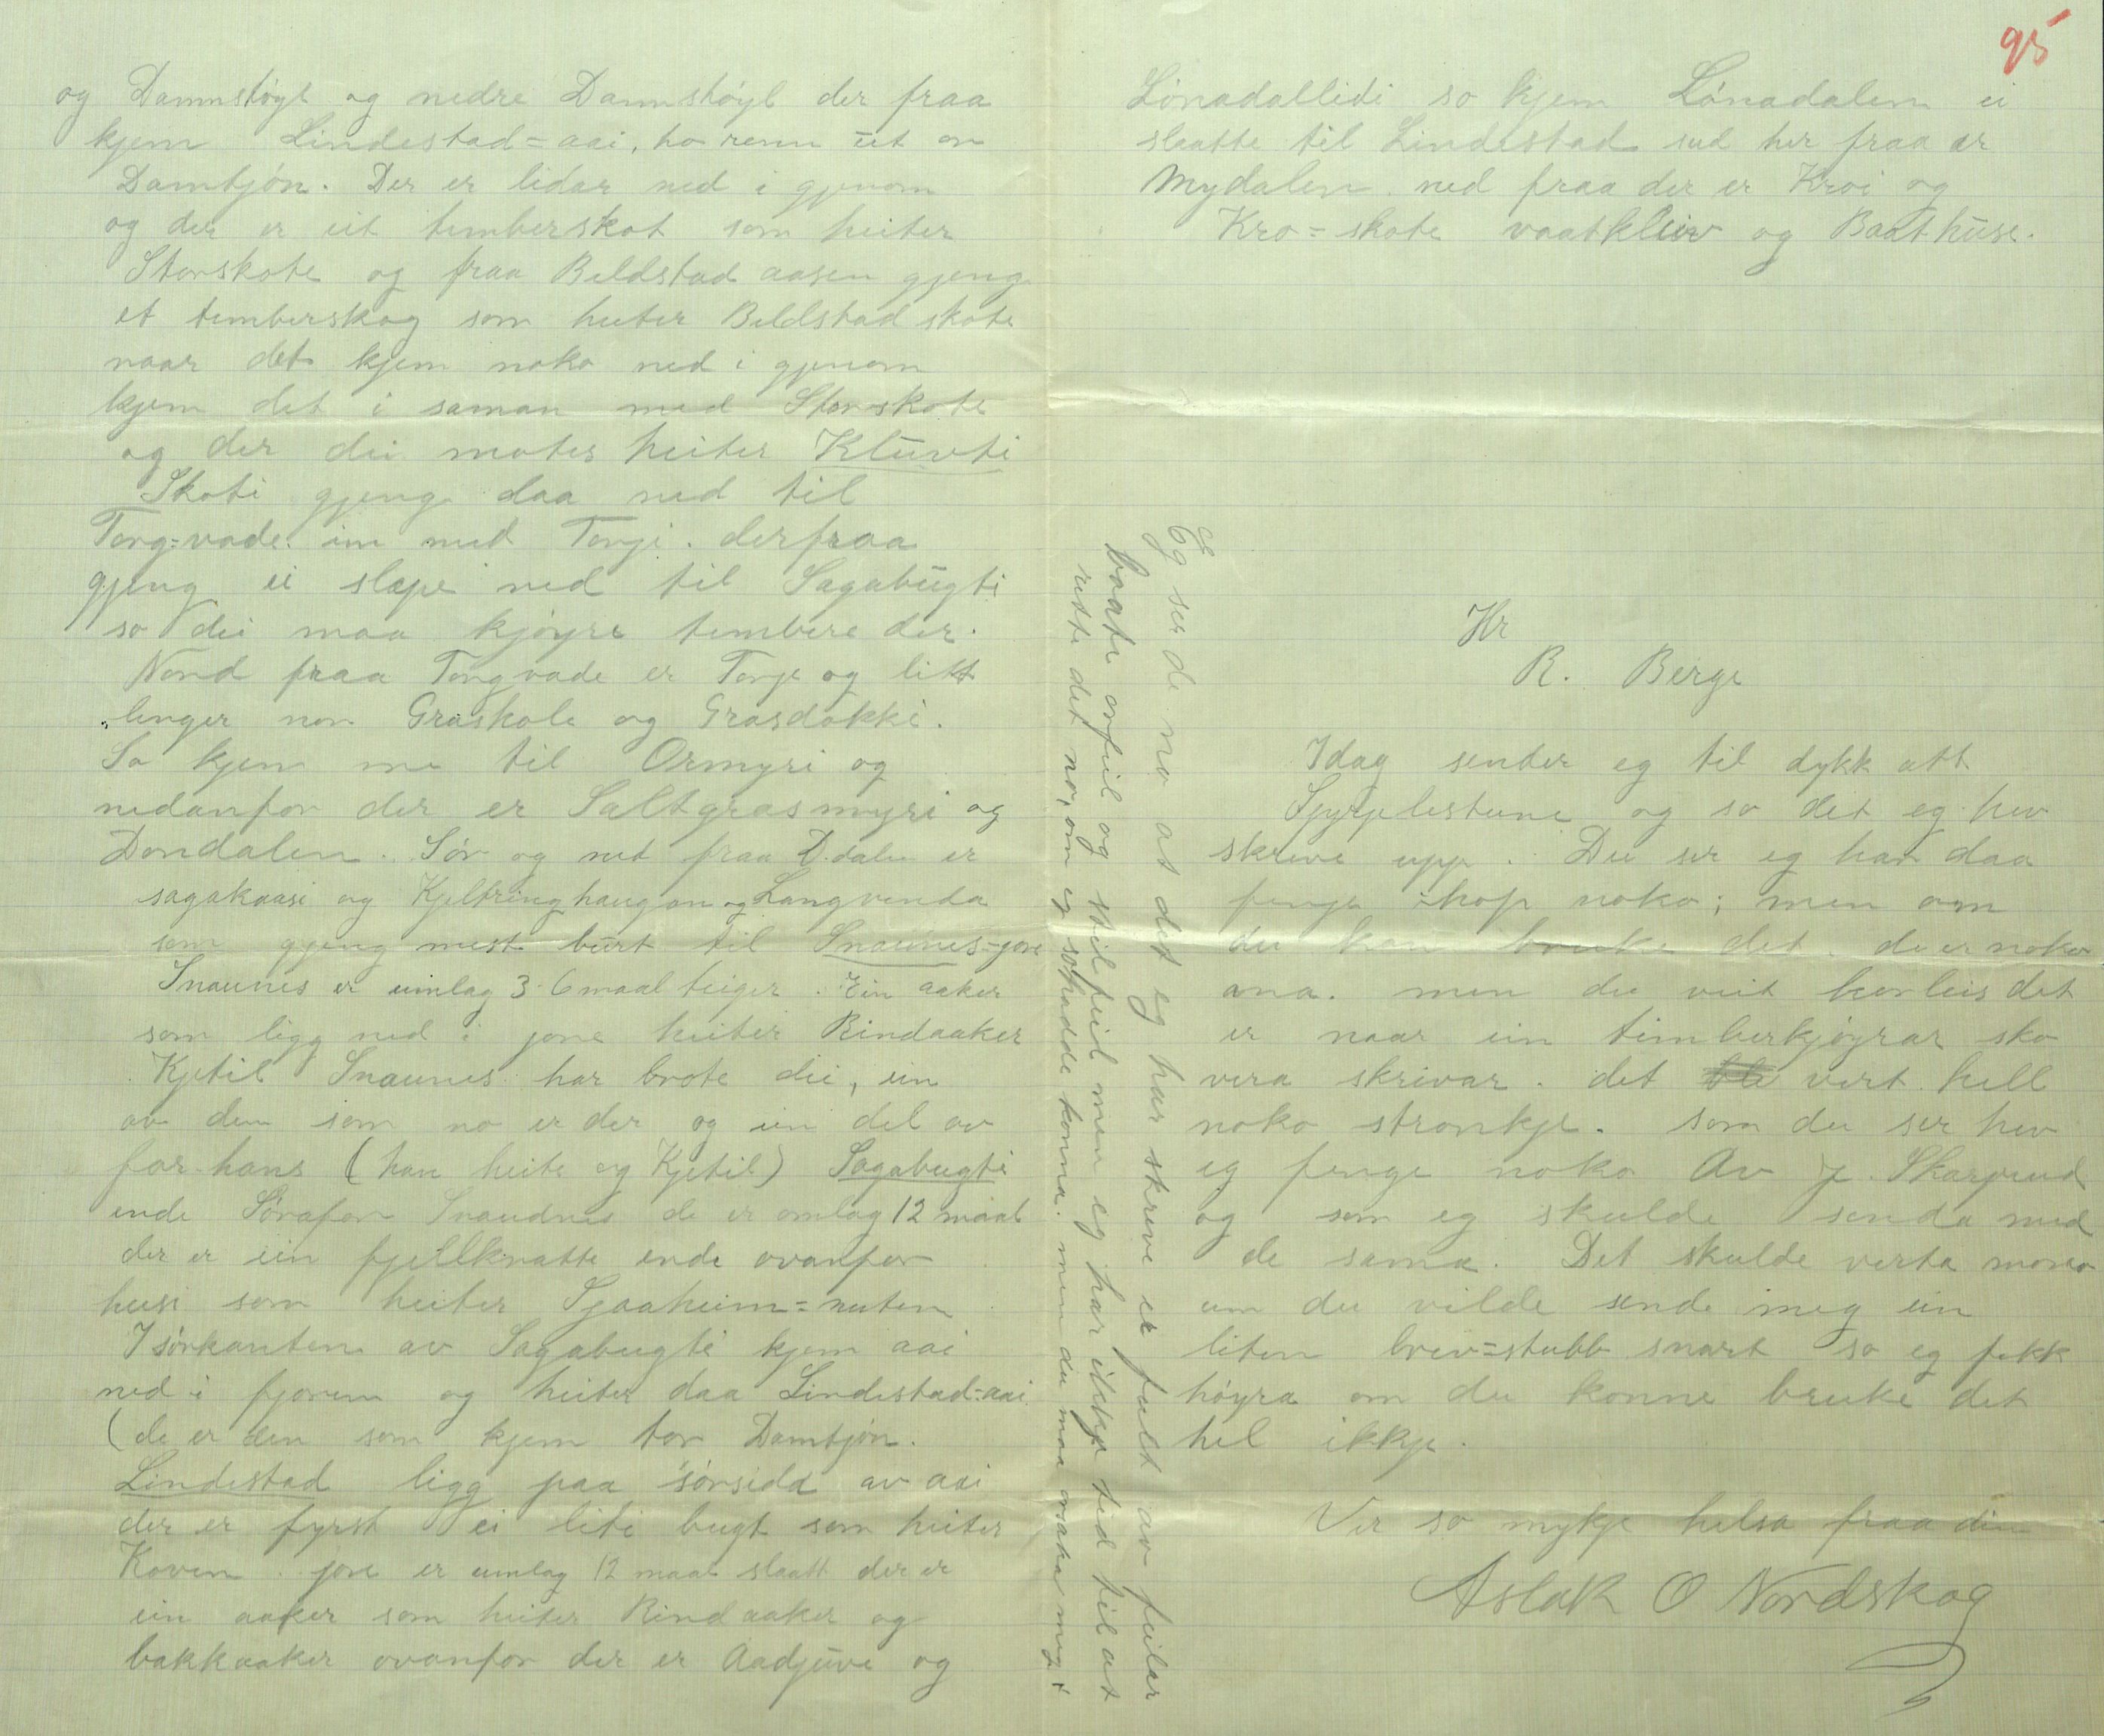 og Dammstøyl og nedre Dammstøyl der fraa
kjem Lindestad=aai, ho renn ut or
Damtjøn. Der er lidar ned i gjenom
og der er eit temberskot som heiter
Storskote og fraa Beldstad aasen gjeng
et temberskog som heiter Beldstad skote
naar det kjem noko ned i gjenom
kjem det i saman med Storskote
og der dei motes heiter Kluvti
Skoti gjenge daa ned til
Torg=vade inn med Torje. derfraa
gjeng ei slæpe ned til Sagabugti
so dei maa kjøyre tembere der.
Nord fraa Torgvade er Torje og litt
lenger nor Graskole og Grasdokki.
So kjem me til Ormyri og
nedanfor der er Saltgrasmyri og
Dondalen. Sør og net fraa D.dalen er
sagakaasi og Kjeltringhaugan og Langvenda
som gjeng mest burt til Snaunes=jore
Snaunes er umlag 3-6 maal teiger. Ein aaker
som ligg ned i jore heiter Rindaaker
Kjetil Snaunes har brote dei, ein
av dem som no er der og ein del av
far hans (han heite og Kjetil) Sagabugti
ende Sørafor Snaudnes de er omlag 12 maal
der er ein fjellknatte ende ovanfor
husi som heiter Sjaaheim=nuten
I sørkanten av Sagabugti kjem aai
ned i fjoren og heiter daa Lindestad=aai
(de er den som kjem tor Damtjøn.
Lindestad ligg paa sørsida av aai
der er fyrst ei liti bugt som heiter
Koven. jore er umlag 12 maal slaatt der er
ein aaker som heiter Rindaaker og
bakkaaker ovanfor der er Aadjuve og
95
Lønadallidi so kjem Lønadalen ei
slaatte til Lindestad sud her fraa er
Mydalen ned fraa der er Kroi og
Kro=skote vaatkleiv og Baathuse.
Hr
R. Berge
Idag sender eg til dykk att
Spyrjelistune og so det eg hev
skreve upp. Du ser eg har daa
fenge ihop noko; men om
du kan bruke det. de er noko
ana. men du veit korleis det
er naar ein timberkjøyrar sko
vera skrivar. det vert hell
noko stronkje. som du ser hev
eg fenge noko Av J. Skarprud
og som eg skulde senda med
de sama. Det skulde verta moro
um du vilde sende meg ein
liten brev=stubb snart so eg fekk
høyra om du konne bruke det
hel ikkje.
Ver so mykje helsa fraa din
Aslak O Nordskog
Eg ser de no at det eg har skreve er fult av feilar
baate orfeil og stilfeil men eg har ikkje tid til at
rette det no, om eg so hadde konna. men du maa orsaka meg